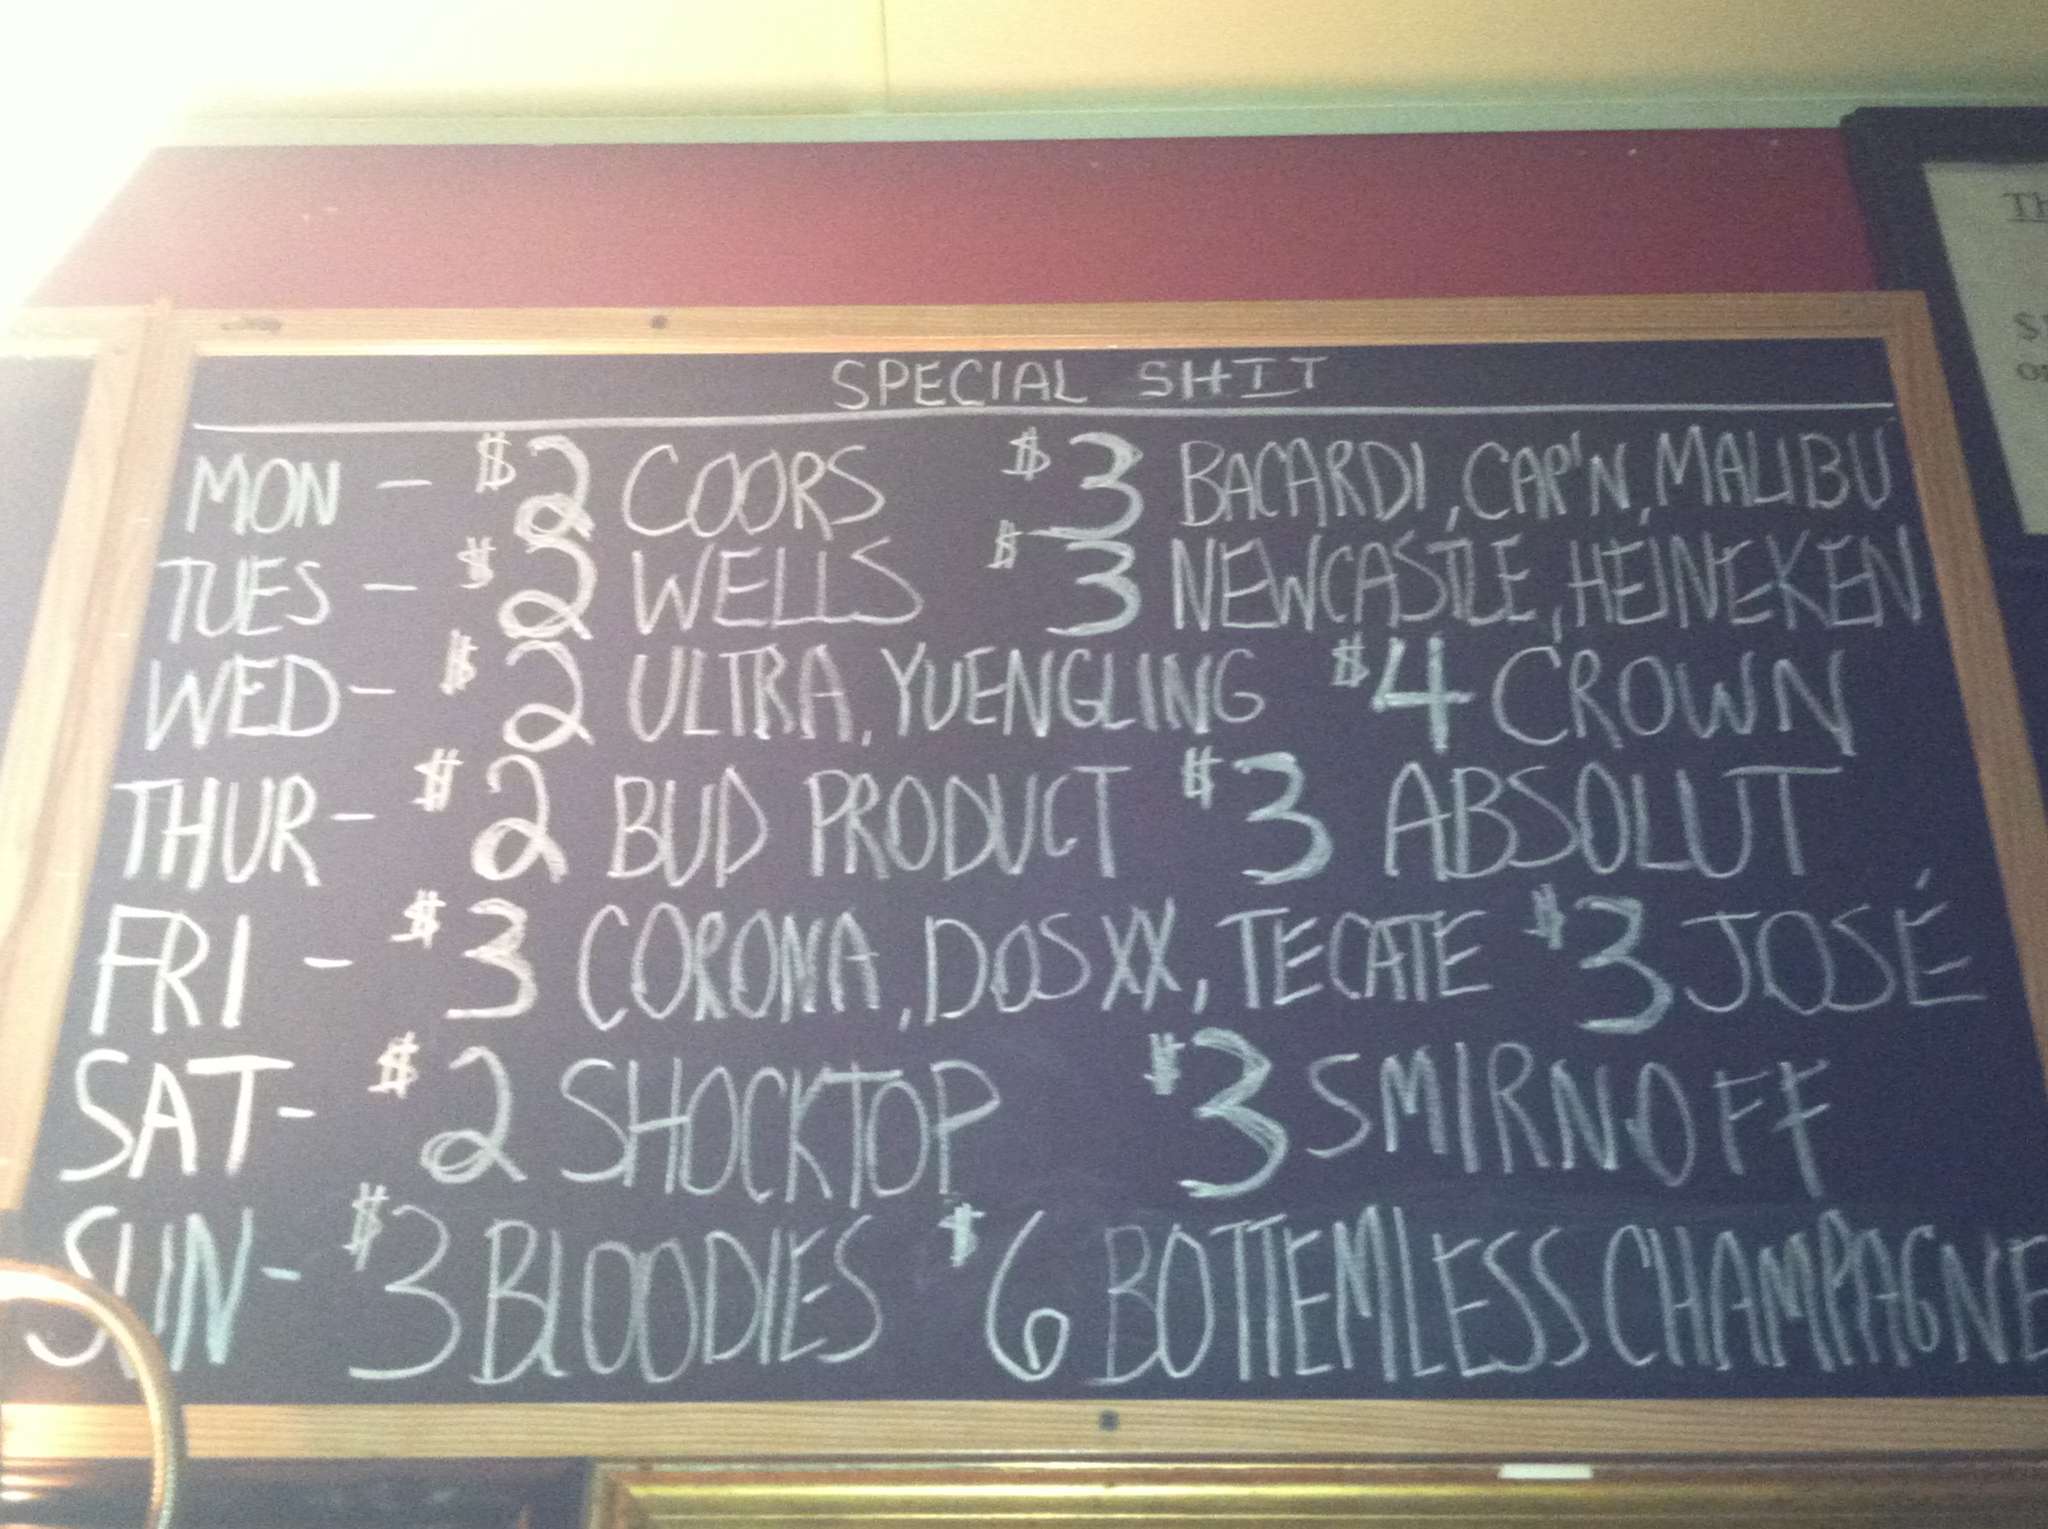 SPECIAL SHIT
MON - $2 COORS $3 BACARDI, CAP'N, MALIBU
TUES - $2 WELLS $3 NEWCASTLE, HEINEKEN
WED - $2 ULTRA, YUENGLING $4 CROWN
THUR - $2 BUD PRODUCT $3 ABSOLUT
FRI - $3 CORONA, DOS XX, TECATE $3 JOSÉ
SAT - $2 SHOCKTOP $3 SMIRNOFF
SUN - $3 BLOODIES $6 BOTTEMLESS CHAMPAGNE